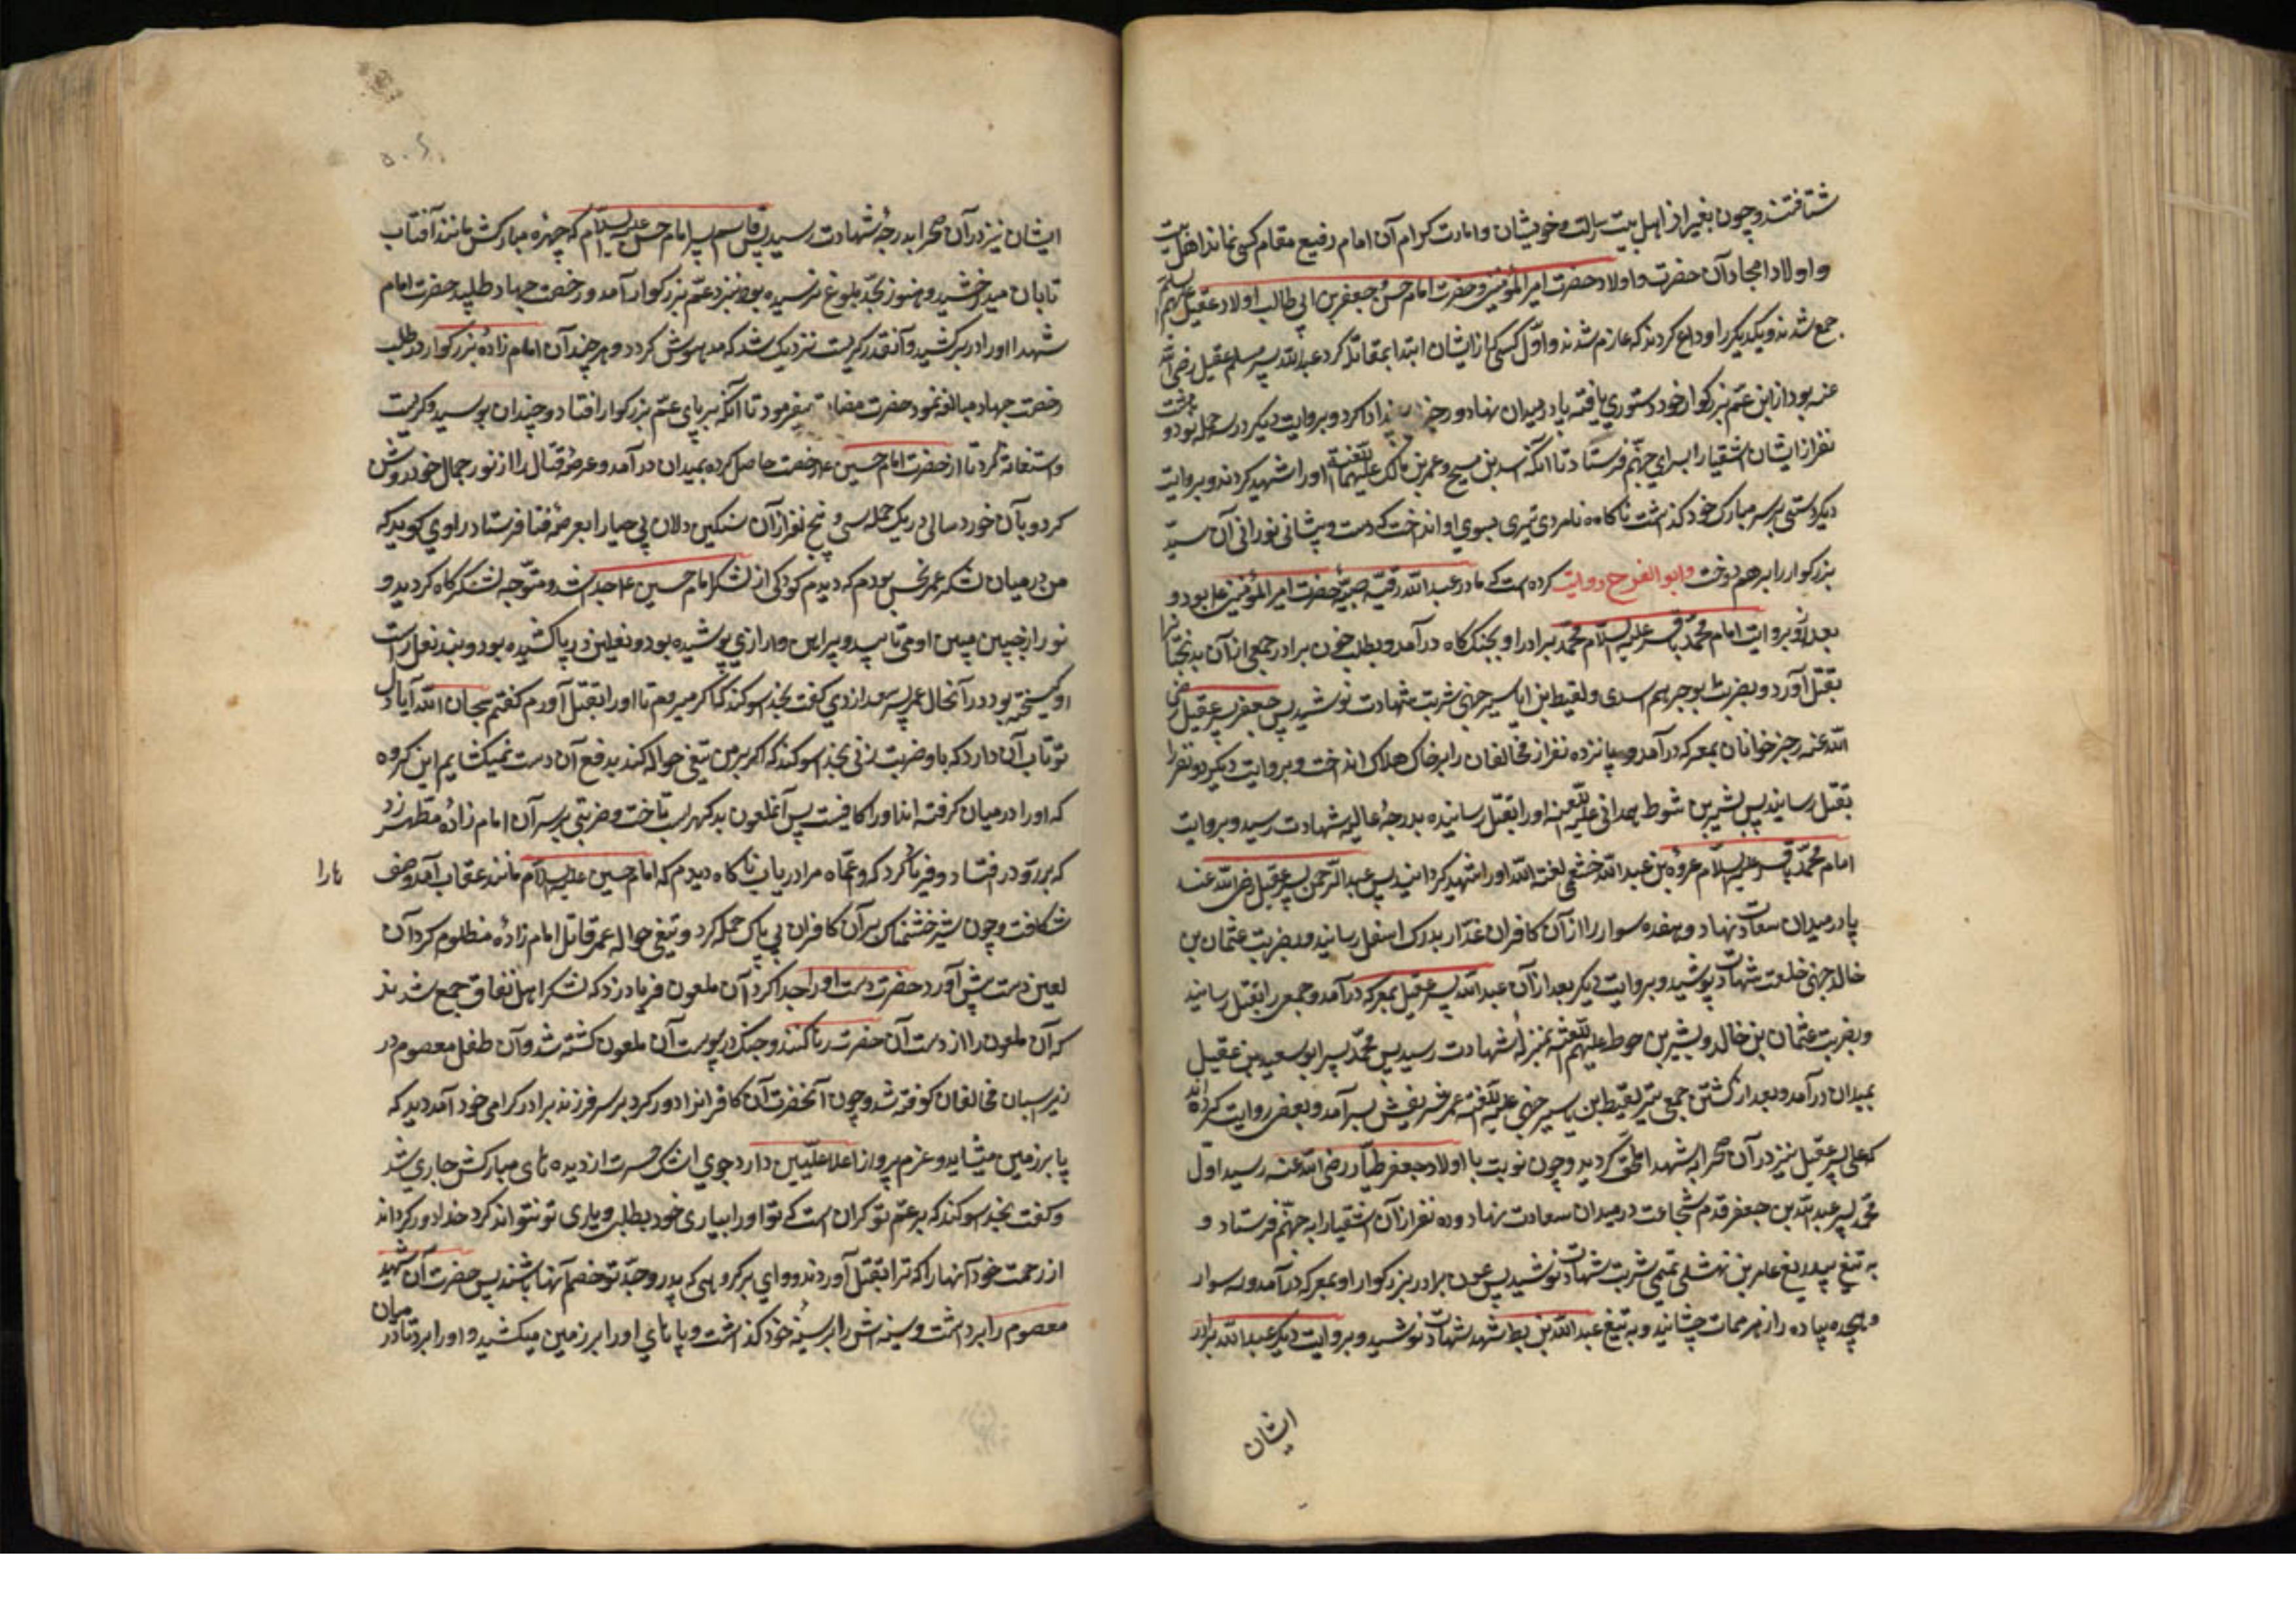 شتافتند و چون بغیر از اهل بیت رسالت و خویشان و امارت کرام آن امام رفیع مقام کسی نماند اهل بیت
و اولاد امجاد آن حضرت و اولاد حضرت امیر المؤمنین و حضرت امام حسن و جعفر بن ابی طالب و اولاد عقیل علیهم السلام
جمع شدند و یکدیگر را وداع کردند که عازم شدند و اول کسی که از ایشان ابتدا بمقاتله کرد عبدالله پسر مسلم عقیل رضی الله
عنه بود از ابن عم بزرکوار خود دستوری یافته پا در میدان نهاد و رجز ادا کرد و بروایت دیکر در سه حمله نود و هشت
نفر از ایشان اشقیا را بسرای جهنم فرستاد تا آنکه اسد بن مسیح و عمر بن مالک علیهما اللعنة او را شهید کردند و بروایت
دیکر دستی بر سر مبارک خود کذاشت ناکاه نامردی تیری بسوی او انداخت که دست و پیشانی نورانی آن سید
بزرکوار را برهم دوخت و ابو الفرج روایت کرده است که مادر عبدالله رقیه صبیه حضرت امیر المؤمنین ع بود و
بعد از او بروایت امام محمد باقر علیه السلام محمد برادر او بجنک کاه درآمد و بطلب خون برادر جمعی از آن بدبختان را
بقتل آورد و بضربت ابو جرهم اسدی و لقیط بن ایاسر جهنی شربت شهادت نوشید پس جعفر پسر عقیل رضی
الله عنه رجز خوانان بمعرکه درآمد و پانزده نفر از مخالفان را بر خاک هلاک انداخت و بروایت دیکر دو نفر را
بقتل رسانید پس بشر بن شوط همدانی علیه اللعنه او را بقتل رسانیده بدرجه عالیه شهادت رسید و بروایت
امام محمد باقر علیه السلام عروة بن عبدالله خثعمی لعنة الله او را شهید کردانید پس عبدالرحمن پسر عقیل رضی الله عنه
پا در میدان سعادت نهاد و هفده سوار را از آن کافران غدار بدرک اسفل رسانید و بضربت عثمان بن
خالد جهنی خلعت شهادت پوشید و بروایت دیکر بعد از آن عبدالله پسر عقیل بمعرکه درآمد و جمعی را بقتل رسانید
و بضربت عثمان بن خالد و بشیر بن حوط علیهم اللعنة بمنزله شهادت رسید پس محمد پسر ابو سعید بن عقیل
بمیدان درآمد و بعد از کشتن جمعی بتیر لقیط ابن یاسر جهنی علیه اللعنة عمر شریفش بسر آمد و بعضی روایت کرده اند
که علی پسر عقیل نیز در آن صحرا بشهدا ملحق کردید و چون نوبت با اولاد جعفر طیار رضی الله عنه رسید اول
محمد پسر عبدالله بن جعفر قدم شجاعت در میدان سعادت نهاد و ده نفر از آن اشقیا را به جهنم فرستاد و
به تیغ بیدریغ عامر بن نهشلی تمیمی شربت شهادت نوشید پس عون برادر بزرکوار او بمعرکه درآمد و سه سوار
و هجده پیاده را زهر ممات چشانید و به تیغ عبدالله بن بطه شهد شهادت نوشید و بروایت دیکر عبدالله برادر
ایشان
ایشان نیز در آن صحرا بدرجه شهادت رسید پس قاسم پسر امام حسن علیه السلام که چهره مبارکش مانند آفتاب
تابان میدرخشید و هنوز بحد بلوغ نرسیده بود بنزد عم بزرکوار آمد و رخصت جهاد طلبید حضرت امام
شهدا او را در بر کشید و آنقدر کریست نزدیک شد که مدهوش کردد و هر چند آن امام زاده بزرکوار در طلب
رخصت جهاد مبالغه نمود حضرت مضایقه میفرمود تا آنکه بر پای عم بزرکوار افتاد و چندان بوسید و کریست
و استغاثه کرد تا از حضرت امام حسین ع رخصت حاصل کرده بمیدان درآمد و عرصه قتال را از نور جمال خود روشن
کرد و بآن خورد سالی در یک حمله سی و پنج نفر از آن سنکین دلان بی حیا را بعرصه فنا فرستاد راوی کوید که
من در میان لشکر عمر نحس بودم که دیدم کودکی از لشکر امام حسین ع جدا شد و متوجه لشکرکاه کردید و
نور از جبین مبین او می تابید و پیراهن و ازاری پوشیده بود و نعلین در پا کشیده بود و بند نعل راست
او کسیخته بود در آنحال عمر پسر سعد ازدی کفت بخدا سوکند که میروم تا او را بقتل آورم کفتم سبحان الله آیا دل
تو تاب آن دارد که باو ضربت زنی بخدا سوکند که اکر بر من تیغی حواله کند بدفع آن دست نمیکشایم این کروه
که او را در میان کرفته اند او را کافیست پس آنملعون بدکهر اسب تاخت و ضربتی بر سر آن امام زاده مطهر زد
که بر رو در افتاد و فریاد کرد که وا عماه مرا دریاب ناکاه دیدم که امام حسین علیه السلام مانند عقاب آمد و صف
ها را
شکافت و چون شیر خشمناک بر آن کافران بی باک حمله کرد و تیغی حواله عمر قاتل امام زاده مظلوم کرد آن
لعین دست پیش آورد حضرت دست او را جدا کرد آن ملعون فریاد زد که لشکر اهل نفاق جمع شدند
که آن ملعون را از دست آن حضرت رها کنند و جنک در پیوست آن ملعون کشته شد و آن طفل معصوم در
زیر اسبان مخالفان کوفته شد و چون آنحضرت آن کافرانرا دور کرد بر سر فرزند برادر کرامی خود آمد دید که
پا بر زمین میساید و عزم پرواز اعلا علیین دارد جوی اشک حسرت از دیده های مبارکش جاری شد
و کفت بخدا سوکند که بر عم تو کران است که تو او را بیاری خود بطلبی و یاری تو نتواند کرد خدا دور کرداند
از رحمت خود آنها را که ترا بقتل آوردند و وای بر کروهی که پدر و جد تو خصم آنها باشند پس حضرت آن شهید
معصوم را برداشت و سینه اش را بر سینه خود کذاشت و پاهای او را بر زمین میکشید و او را برد تا در میان